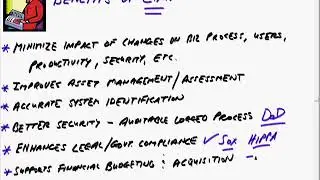 BENEFITS OF
* MINIMIZE IMPACT OF CHANGES ON BIZ PROCESS, USERS,
PRODUCTIVITY, SECURITY, ETC.
* IMPROVES ASSET MANAGEMENT/ASSESSMENT
* ACCURATE SYSTEM IDENTIFICATION
* BETTER SECURITY - AUDITABLE LOGGED PROCESS DoD
* ENHANCES LEGAL/GOVT. COMPLIANCE ✓ SOX HIPPA
* SUPPORTS FINANCIAL BUDGETING : ACQUISITION -